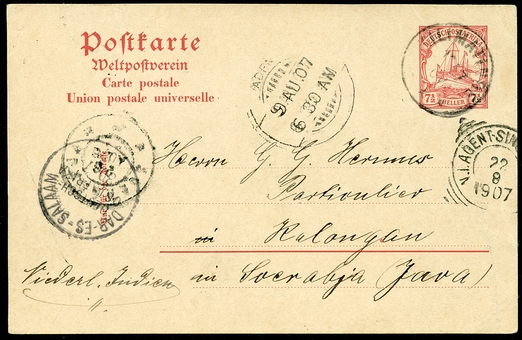 Postkarte
Weltpostverein
Carte postale
Union postale universelle
ADEN
9 AU. 07
6 30 AM
DEUTSCH-OSTAFRIKA
7½ HELLER 7½
N.I. AGENT. SIN
22
8
1907
DAR-ES-SALAAM
Herrn G. G. Hermus
Particulier
in Kalongan
in Soerabja (Java)
Niederl. Indien